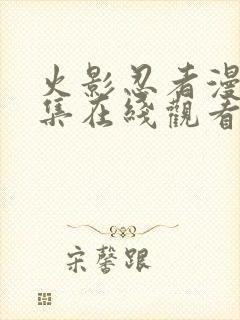 火影忍者漫
集在綫觀看
宋馨跟